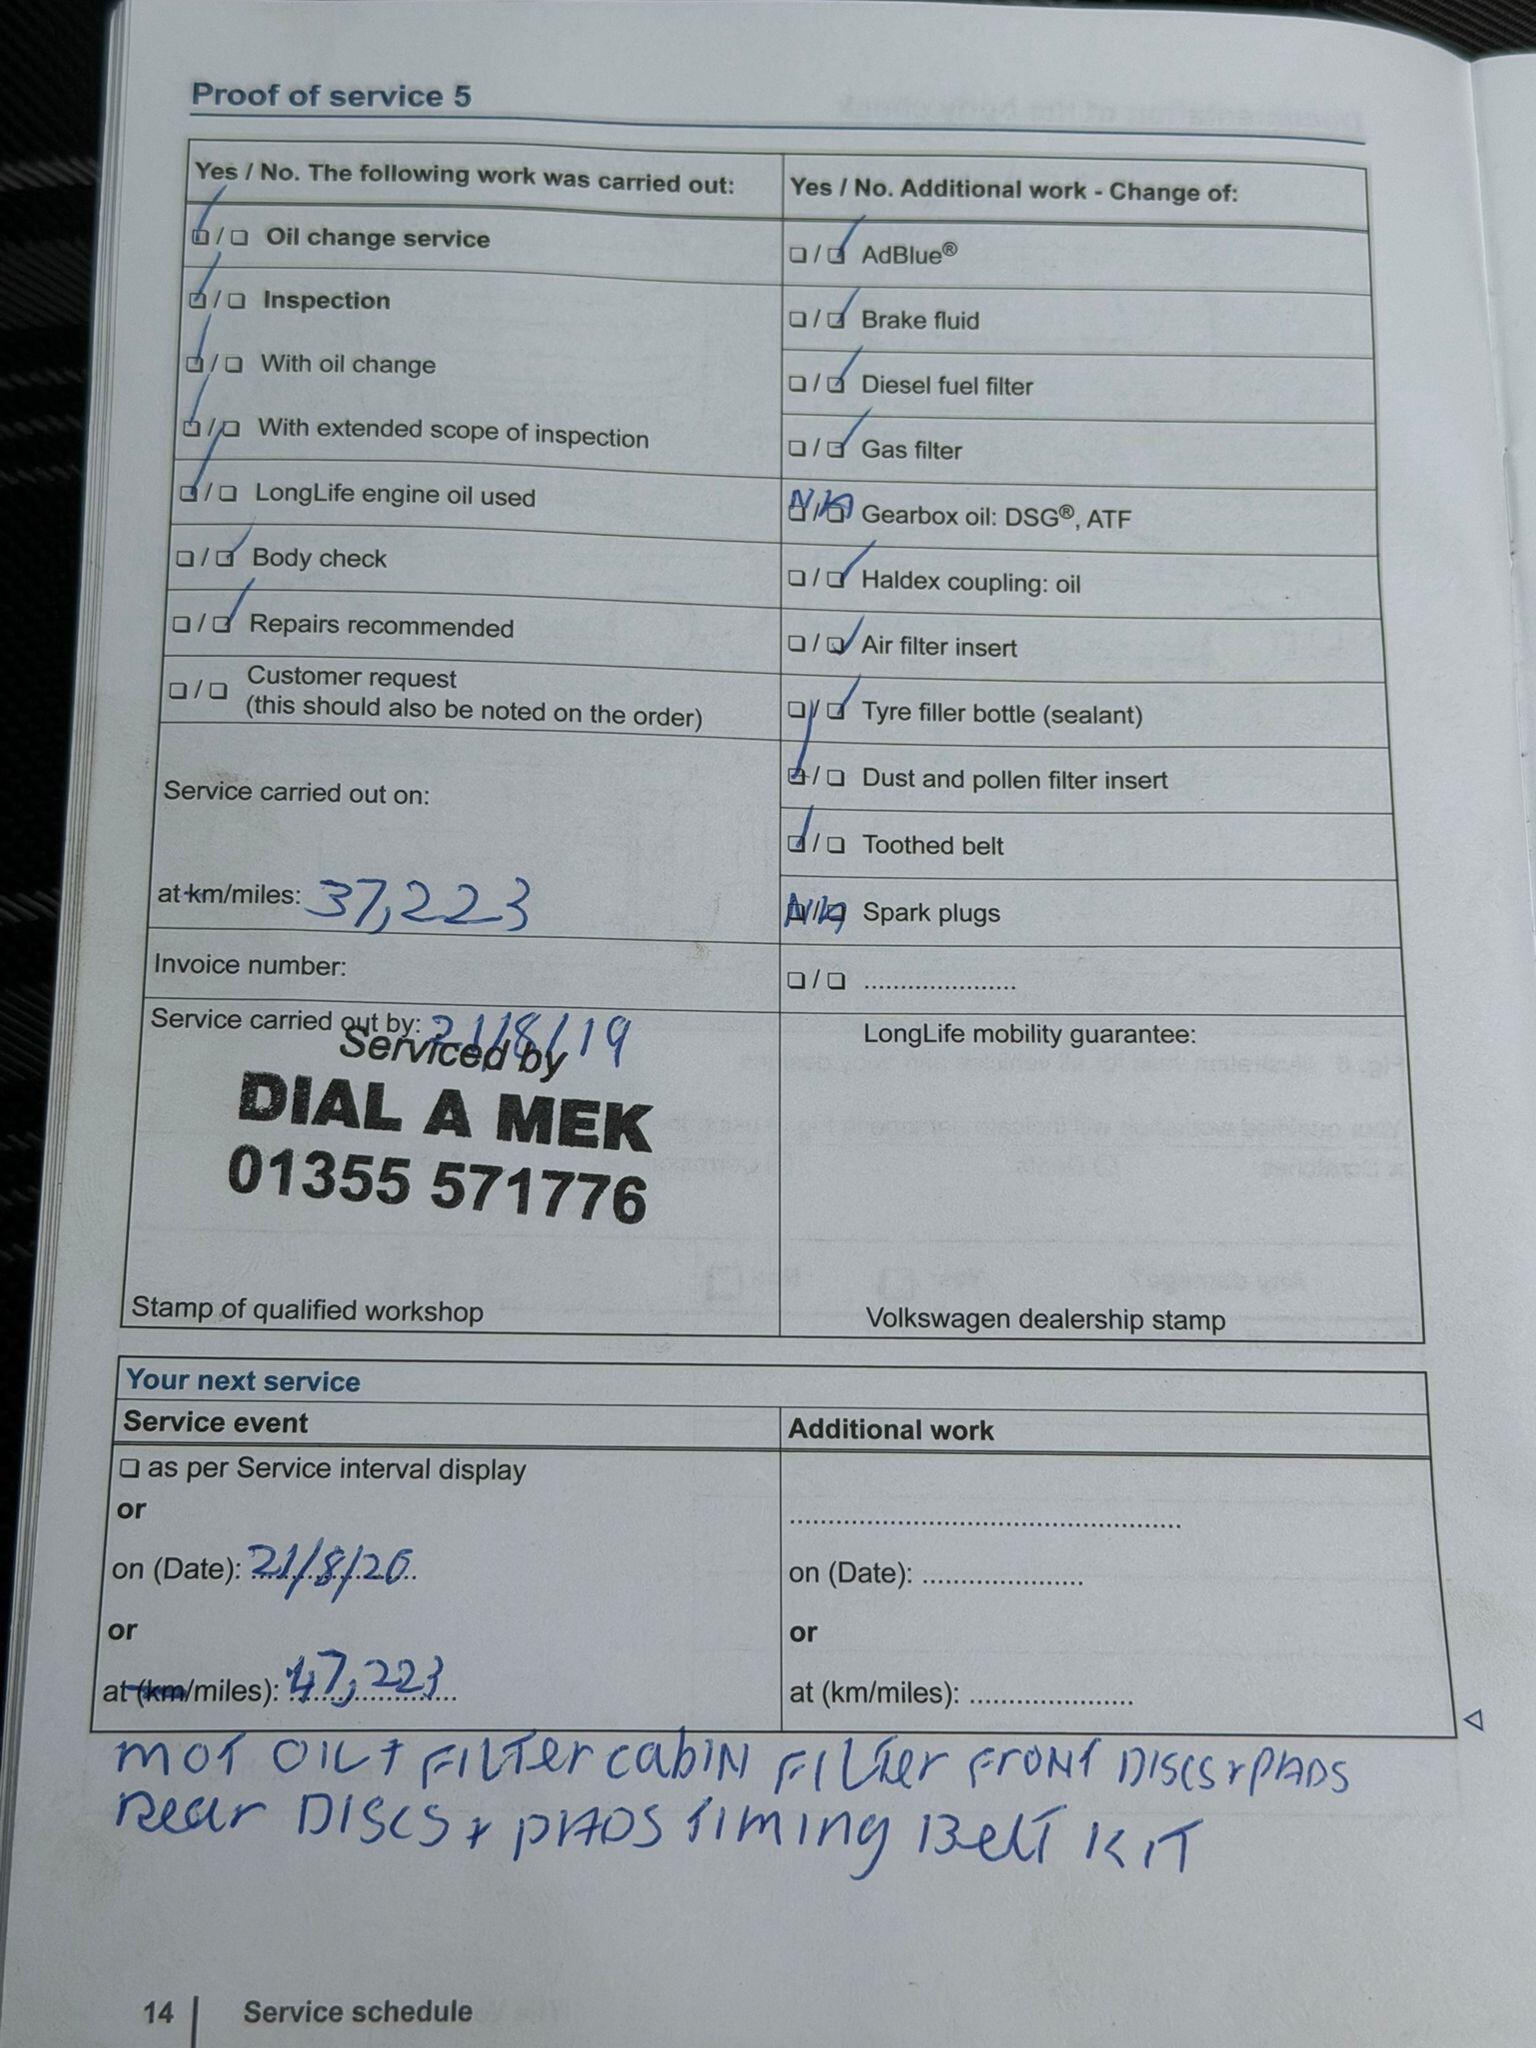 Proof of service 5
Yes / No. The following work was carried out:
☑ / ☐ Oil change service
☑ / ☐ Inspection
☑ / ☐ With oil change
☑ / ☐ With extended scope of inspection
☑ / ☐ LongLife engine oil used
☐ / ☑ Body check
☐ / ☑ Repairs recommended
☐ / ☐ Customer request
(this should also be noted on the order)
Service carried out on:
at km/miles: 37,223
Invoice number:
Service carried out by: 21/8/19
Serviced by
DIAL A MEK
01355 571776
Stamp of qualified workshop
Yes / No. Additional work - Change of:
☐ / ☑ AdBlue®
☐ / ☑ Brake fluid
☐ / ☑ Diesel fuel filter
☐ / ☑ Gas filter
N/A Gearbox oil: DSG®, ATF
☐ / ☑ Haldex coupling: oil
☐ / ☑ Air filter insert
☐ / ☑ Tyre filler bottle (sealant)
☑ / ☐ Dust and pollen filter insert
☑ / ☐ Toothed belt
N/A Spark plugs
☐ / ☐ .....................
LongLife mobility guarantee:
Volkswagen dealership stamp
Your next service
Service event
☐ as per Service interval display
or
on (Date): 21/8/20
or
at (km/miles): 47,223
Additional work
on (Date): ......................
or
at (km/miles): ......................
MOT OIL + FILTER CABIN FILTER FRONT DISCS + PADS
REAR DISCS + PADS TIMING BELT KIT
14 | Service schedule